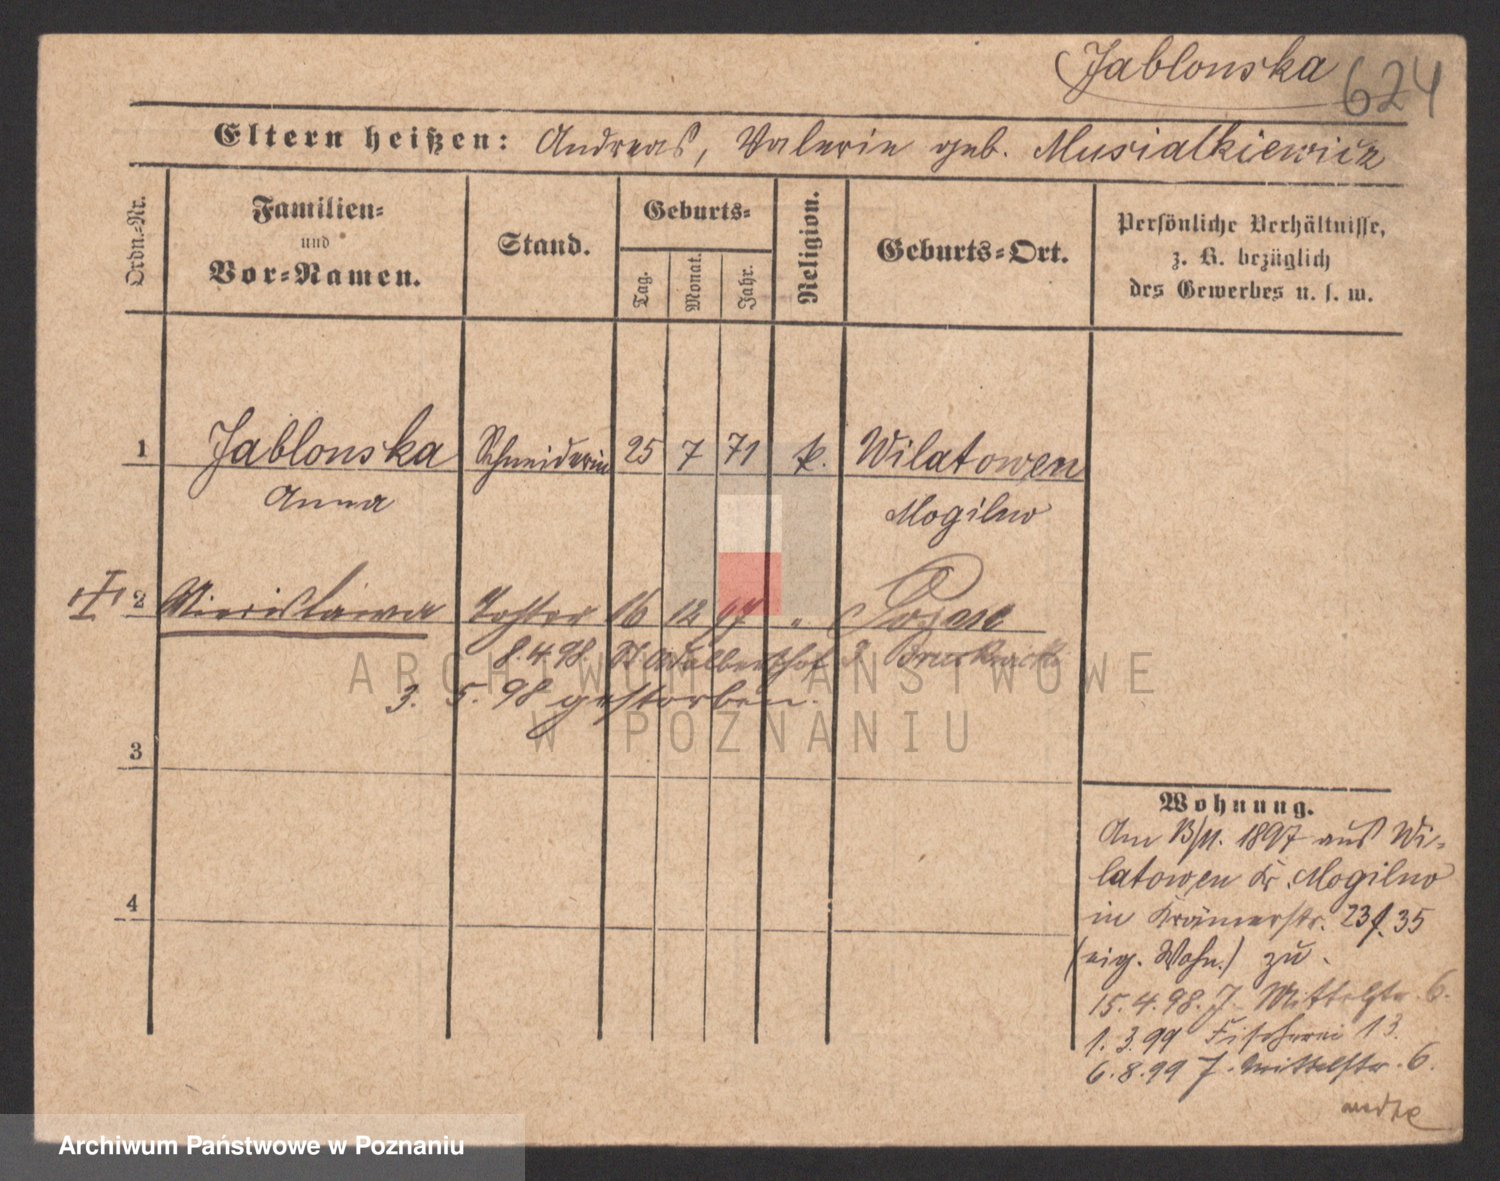 Jablonska 624
Eltern heißen: Andreas, Valerie geb. Musialkiewicz
Ordn.-Nr.
Familien-
und
Vor-Namen.
Stand.
Geburts-
Tag.
Monat.
Jahr.
Religion.
Geburts-Ort.
Persönliche Verhältnisse,
z. B. bezüglich
des Gewerbes u. s. w.
1 Jablonska Schneiderin 25 7 71 k. Wilatowen
Anna Mogilno
2 Tochter 16 12 97 " Posen
8.4.98 St Adalberthof
3. 5. 98 gestorben.
3
4
Wohnung.
Am 13/11. 1897 aus Wi-
latowen Kr. Mogilno
in Krämerstr. 23 35
(eig. Wohn.) zu
15.4.98. J. Mittelstr. 6.
1.3.99 Fischerei 13.
6.8.99 J. Mittelstr. 6.
ARCHIWUM PAŃSTWOWE
W POZNANIU
Archiwum Państwowe w Poznaniu